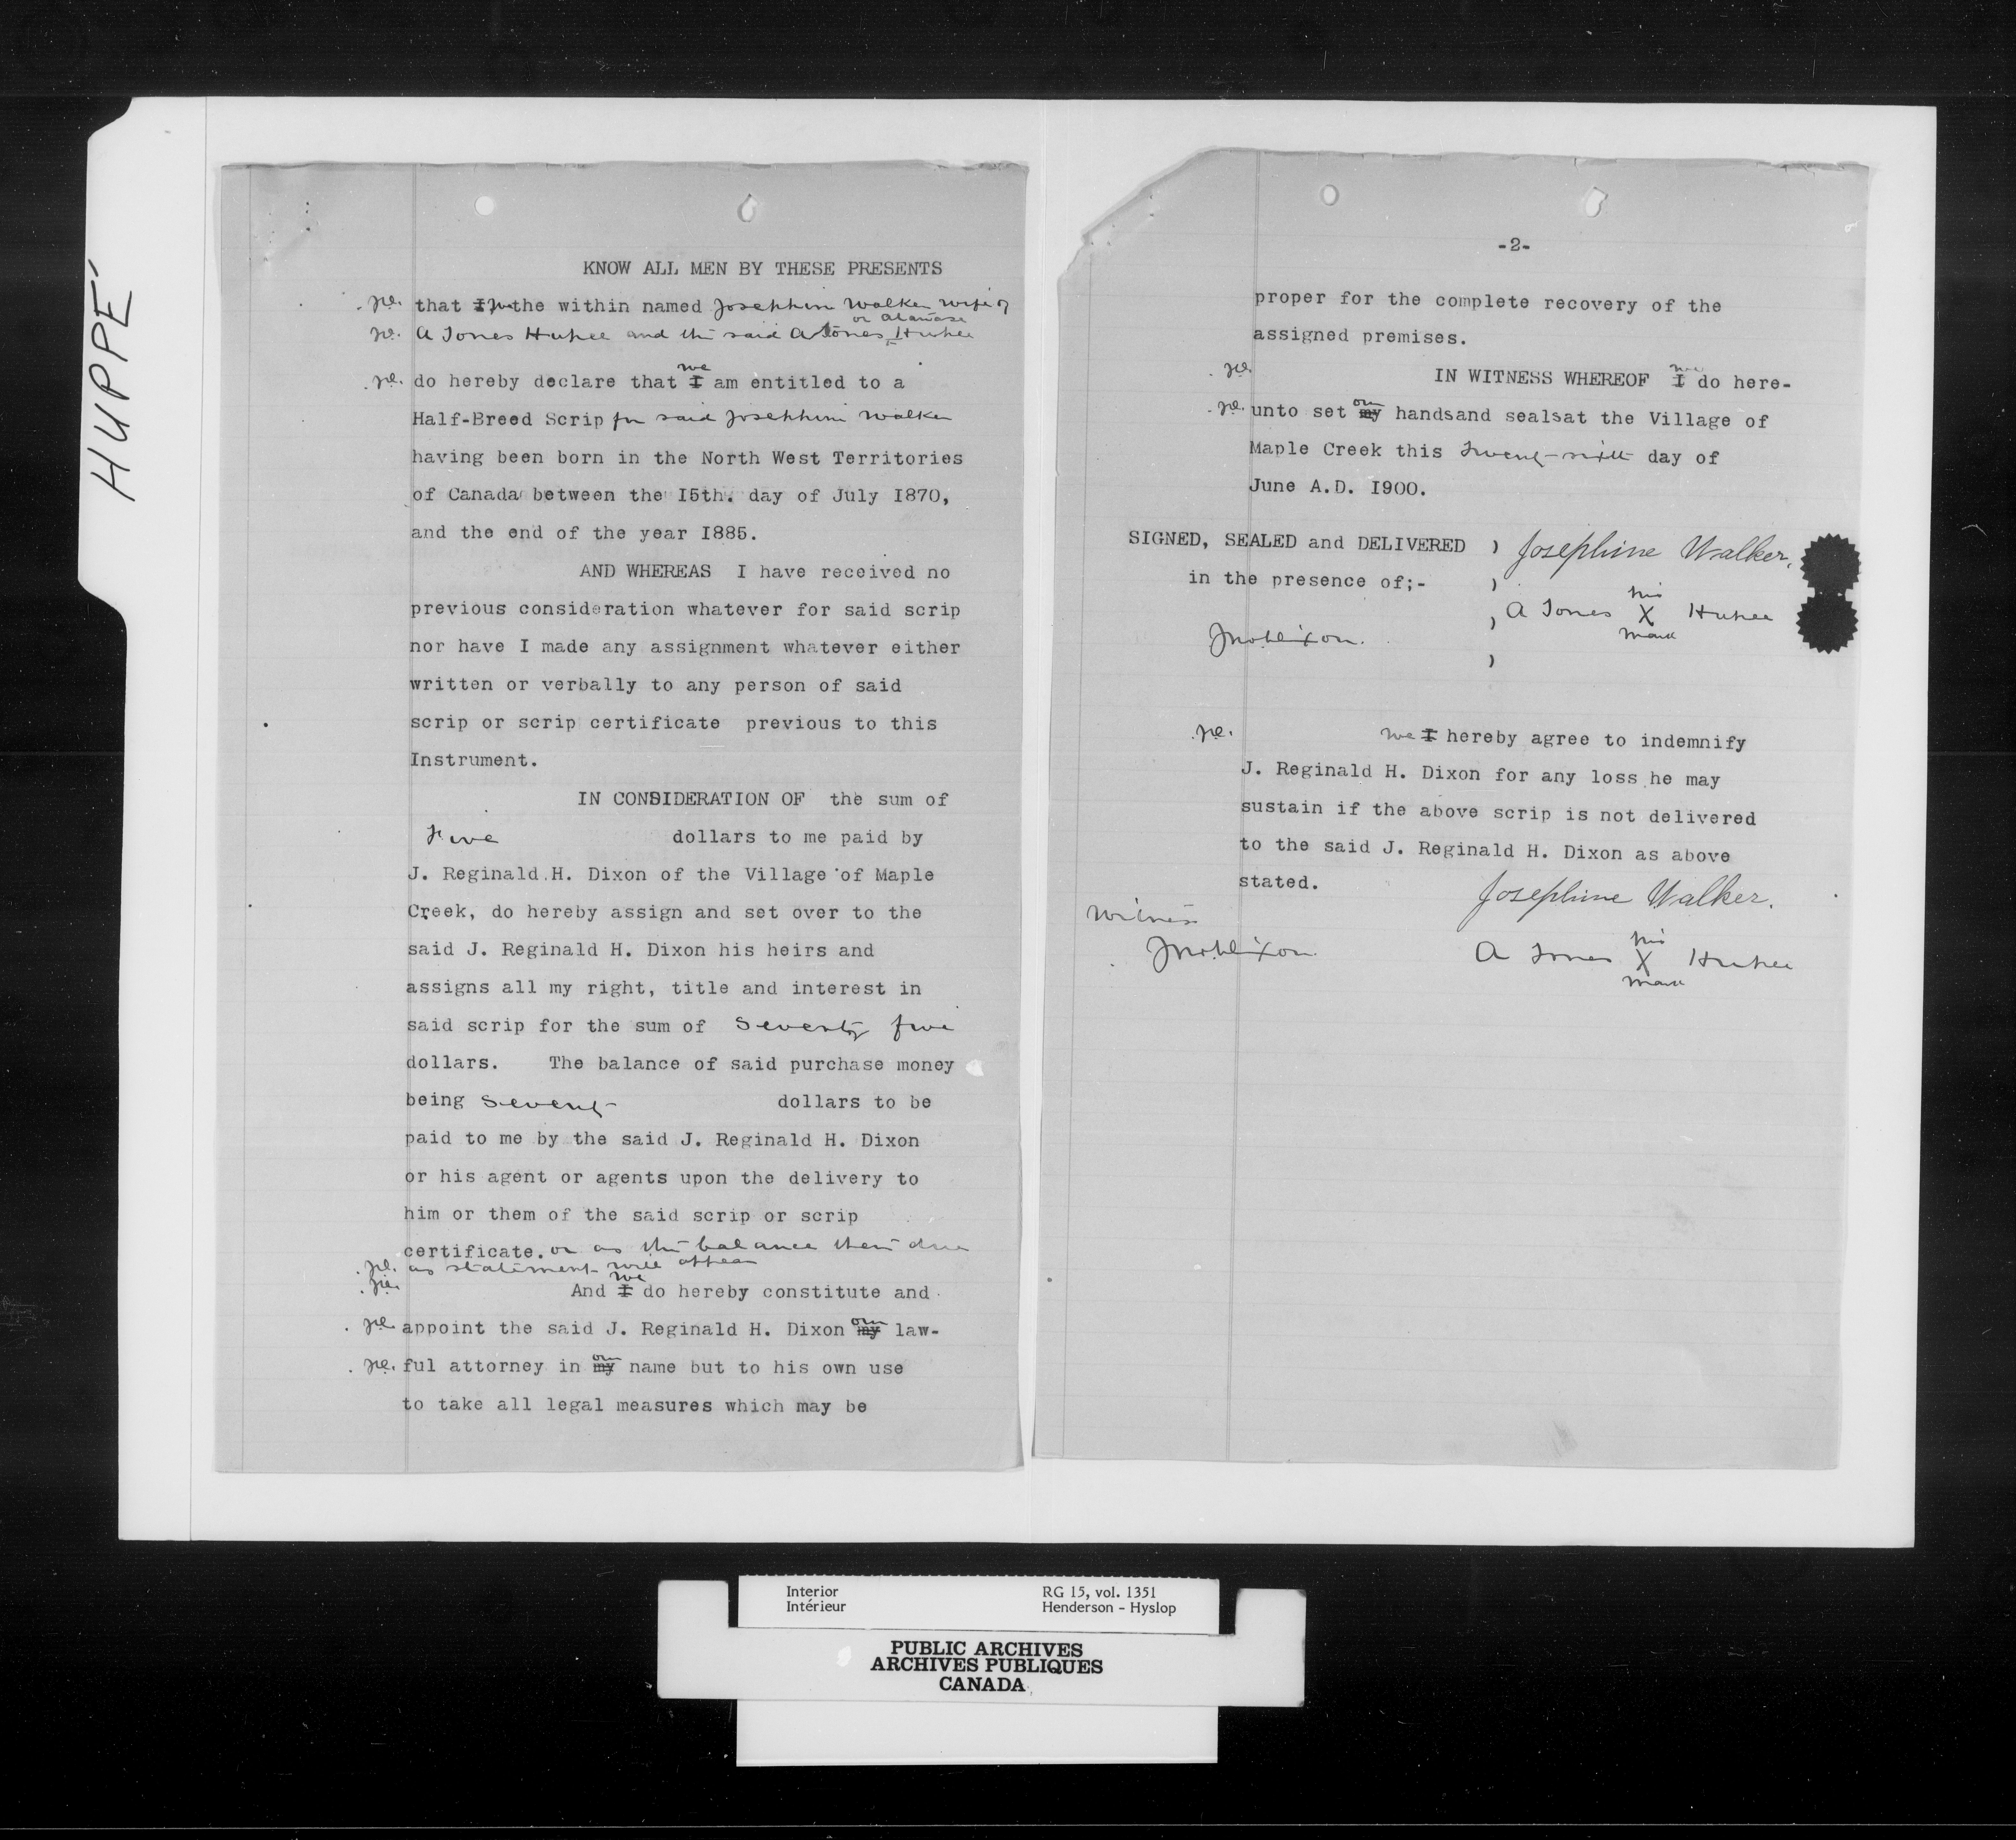 HUPPÉ
KNOW ALL MEN BY THESE PRESENTS
that I we the within named Josephine Walker wife of
or Atanase
A Jones Hupee and the said A Jones Hupee
we
do hereby declare that I am entitled to a
Half-Breed Scrip for said Josephine Walker
having been born in the North West Territories
of Canada between the I5th. day of July I870,
and the end of the year I885.
AND WHEREAS I have received no
previous consideration whatever for said scrip
nor have I made any assignment whatever either
written or verbally to any person of said
scrip or scrip certificate previous to this
Instrument.
IN CONSIDERATION OF the sum of
Five dollars to me paid by
J. Reginald H. Dixon of the Village of Maple
Creek, do hereby assign and set over to the
said J. Reginald H. Dixon his heirs and
assigns all my right, title and interest in
said scrip for the sum of Seventy five
dollars. The balance of said purchase money
being Seventy dollars to be
paid to me by the said J. Reginald H. Dixon
or his agent or agents upon the delivery to
him or them of the said scrip or scrip
certificate. or as the balance then due
as statement will appear
we
And I do hereby constitute and
our
appoint the said J. Reginald H. Dixon my law-
our
ful attorney in my name but to his own use
to take all legal measures which may be
-2-
proper for the complete recovery of the
assigned premises.
we
IN WITNESS WHEREOF I do here-
our
unto set my handsand sealsat the Village of
Maple Creek this Twenty-sixth day of
June A.D. I900.
SIGNED, SEALED and DELIVERED ) Josephine Walker.
in the presence of;- )
his
) A Jones X Hupee
mark
JnoDixon.
)
we I hereby agree to indemnify
J. Reginald H. Dixon for any loss he may
sustain if the above scrip is not delivered
to the said J. Reginald H. Dixon as above
stated.
Josephine Walker.
Witness
his
JnoDixon A Jones X Hupee
mark
Interior RG 15, vol. 1351
Intérieur Henderson - Hyslop
PUBLIC ARCHIVES
ARCHIVES PUBLIQUES
CANADA